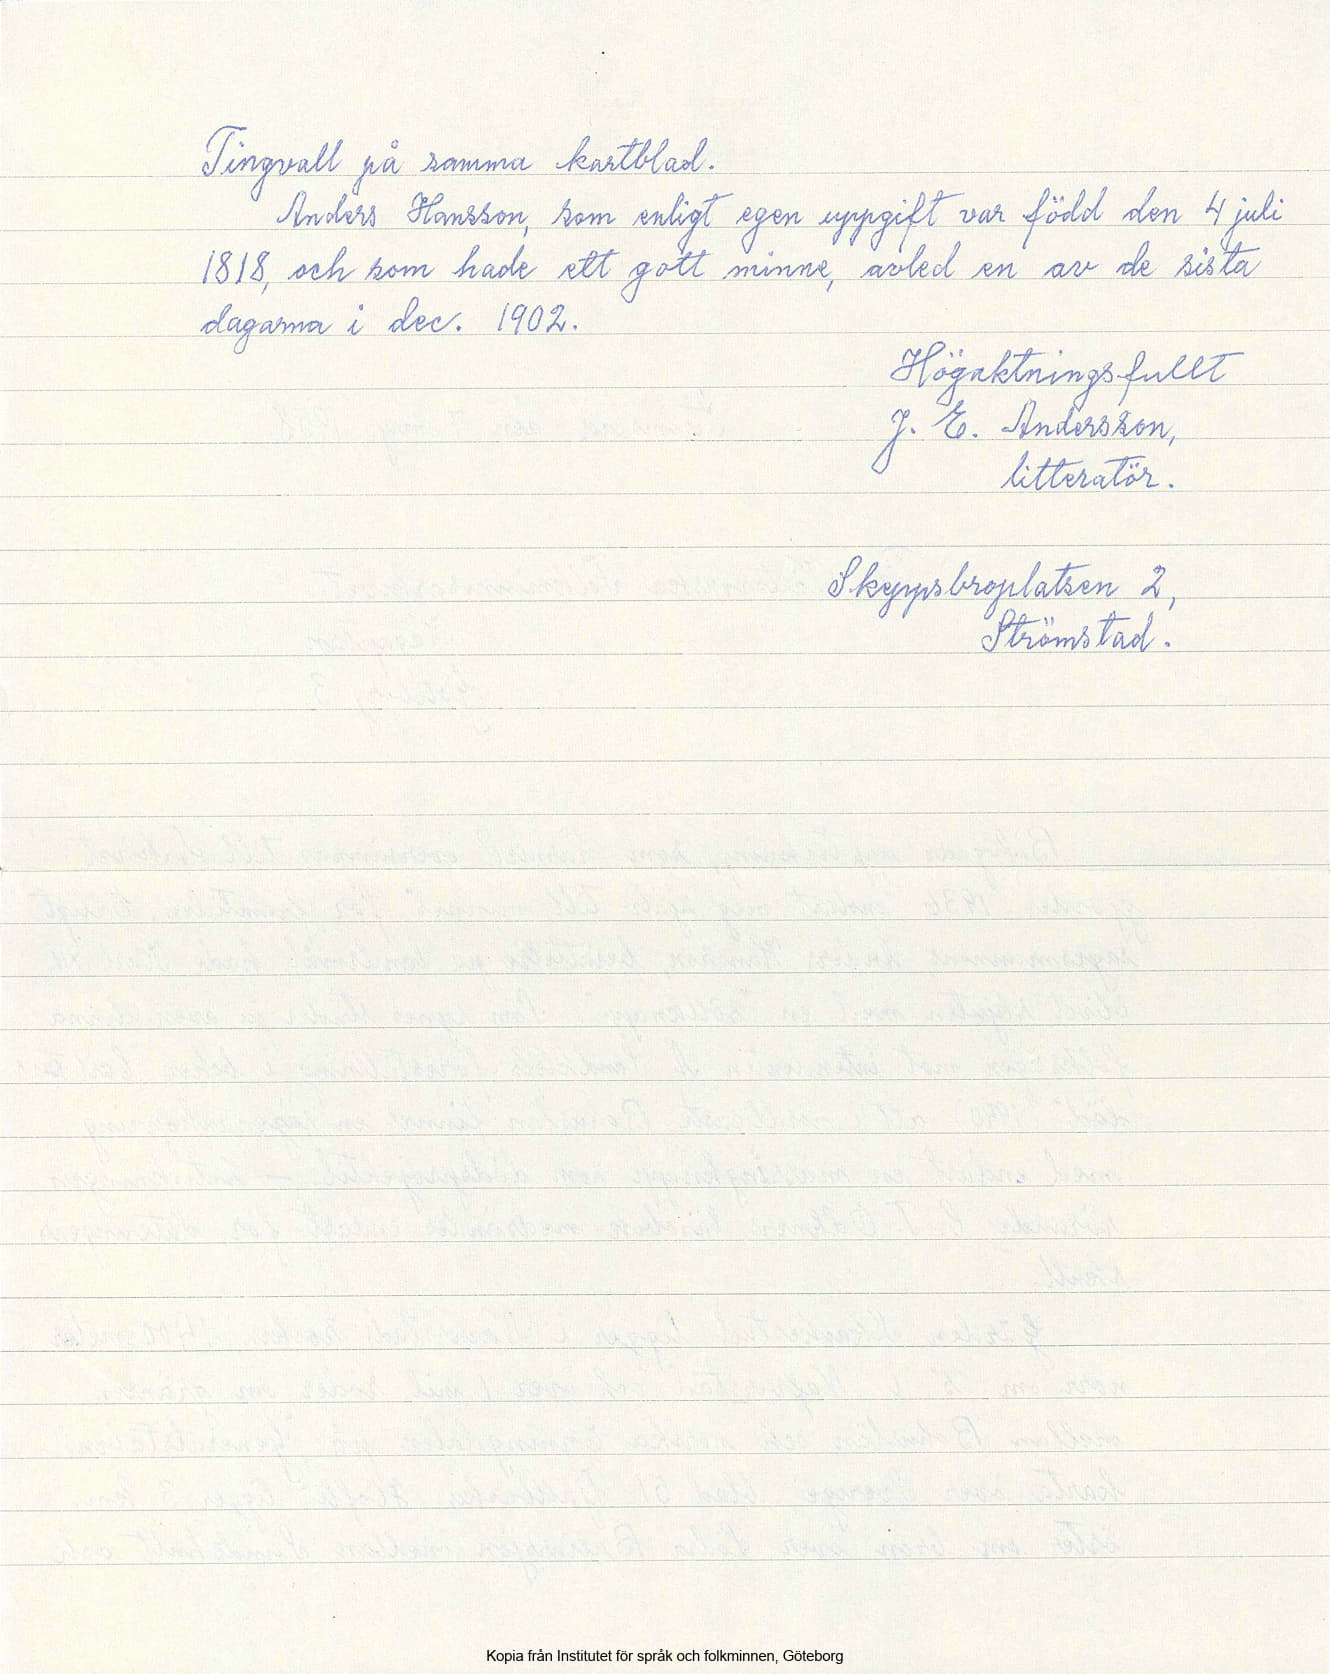 Tingvall på samma kartblad.
Anders Hansson, som enligt egen uppgift var född den 4 juli
1818, och som hade ett gott minne, avled en av de sista
dagarna i dec. 1902.
Högaktningsfullt
J. E. Andersson,
litteratör.
Skeppsbroplatsen 2,
Strömstad.
Kopia från Institutet för språk och folkminnen, Göteborg